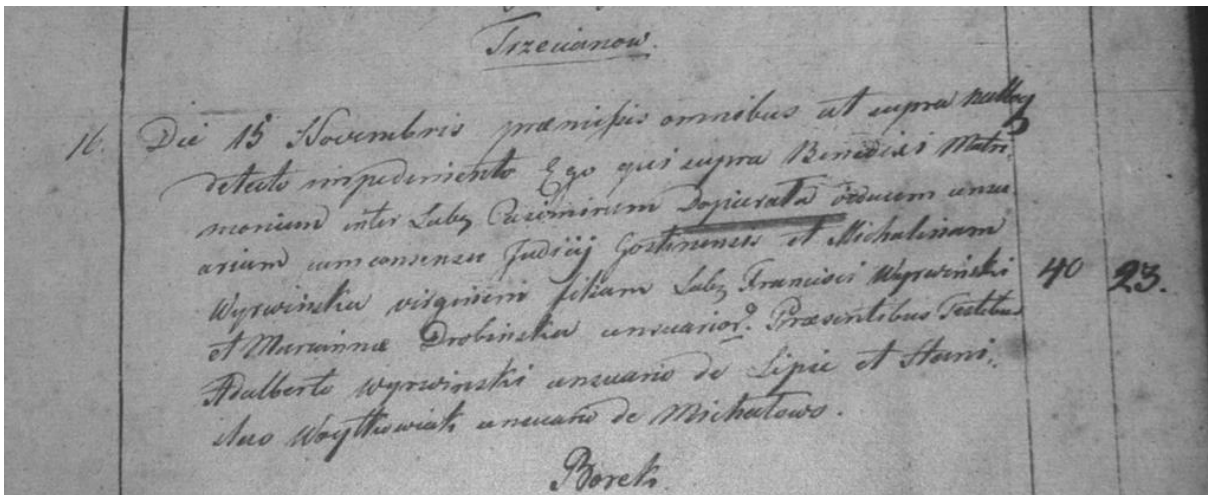 Trzecianow.
16. Die 15 Novembris præmissis omnibus ut supra nulloq
detecto impedimento Ego qui supra Benedixi Matri-
monium inter Labz Casimirum Dopierała viduum censu
arium cum consensu Judicij Gostinensis et Michalinam
Wyrwinska virginem filiam Labz Francisci Wyrwinski 40 23.
et Mariannæ Drobinska censuarior. Præsentibus Testibus
Adalberto Wyrwinski censuario de Lipie et Stani-
slao Woytkowiak censuario de Michałowo.
Borek.